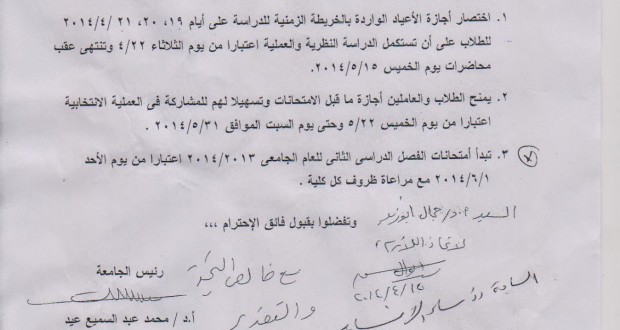 ١. اختصار أجازة الأعياد الواردة بالخريطة الزمنية للدراسة على أيام ١٩، ٢٠، ٢١ /٢٠١٤/٤
للطلاب على أن تستكمل الدراسة النظرية والعملية اعتبارا من يوم الثلاثاء ٤/٢٢ وتنتهى عقب
محاضرات يوم الخميس ٢٠١٤/٥/١٥.
٢. يمنح الطلاب والعاملين أجازة ما قبل الامتحانات وتسهيلا لهم للمشاركة فى العملية الانتخابية
اعتبارا من يوم الخميس ٥/٢٢ وحتى يوم السبت الموافق ٢٠١٤/٥/٣١ .
٣. تبدأ أمتحانات الفصل الدراسى الثانى للعام الجامعى ٢٠١٤/٢٠١٣ اعتبارا من يوم الأحد
٢٠١٤/٦/١ مع مراعاة ظروف كل كلية .
وتفضلوا بقبول فائق الإحترام ،،،
السيد أ.د/ جمال أبوزيد
لاتخاذ اللازم
٢٠١٤/٤/١٥
مع خالص التحية
والتقدير
رئيس الجامعة
أ.د / محمد عبد السميع عيد
السادة